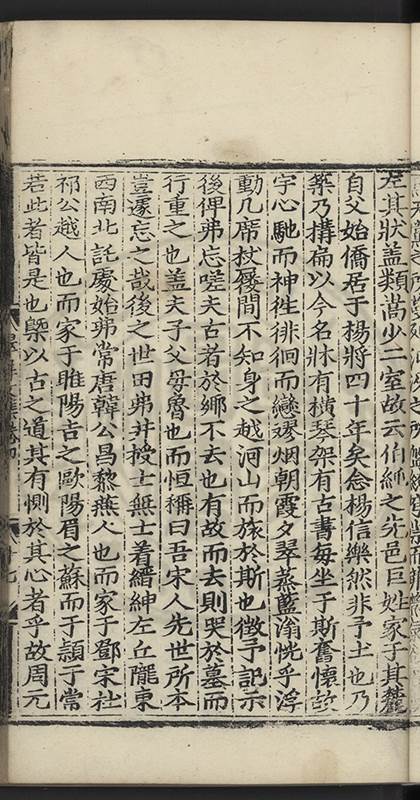 左其狀蓋類嵩少二室故云伯紳之先邑巨姓家于其麓
自父始僑居于楊將四十年矣念楊信樂然非予土也乃
築乃搆扁以今名牀有橫琴架有古書每坐于斯舊懷故
宇心馳而神徃徘徊而戀嫪烟朝霞夕翠蒸藍滃恍乎浮
動几席杖屨間不知身之越河山而旅於斯也徴予記示
後俾弗忘嗟夫古者於鄉不去也有故而去則哭於墓而
行重之也蓋夫子父母魯也而恒稱曰吾宋人先世所本
豈遽忘之哉後之世田弗井授士無土着縉紳左丘隴東
西南北託處始弗常唐韓公昌黎燕人也而家于鄧宋杜
祁公越人也而家于睢陽吉之歐陽眉之蘇而于頴于常
若此者皆是也槩以古之道其有惻於其心者乎故周元